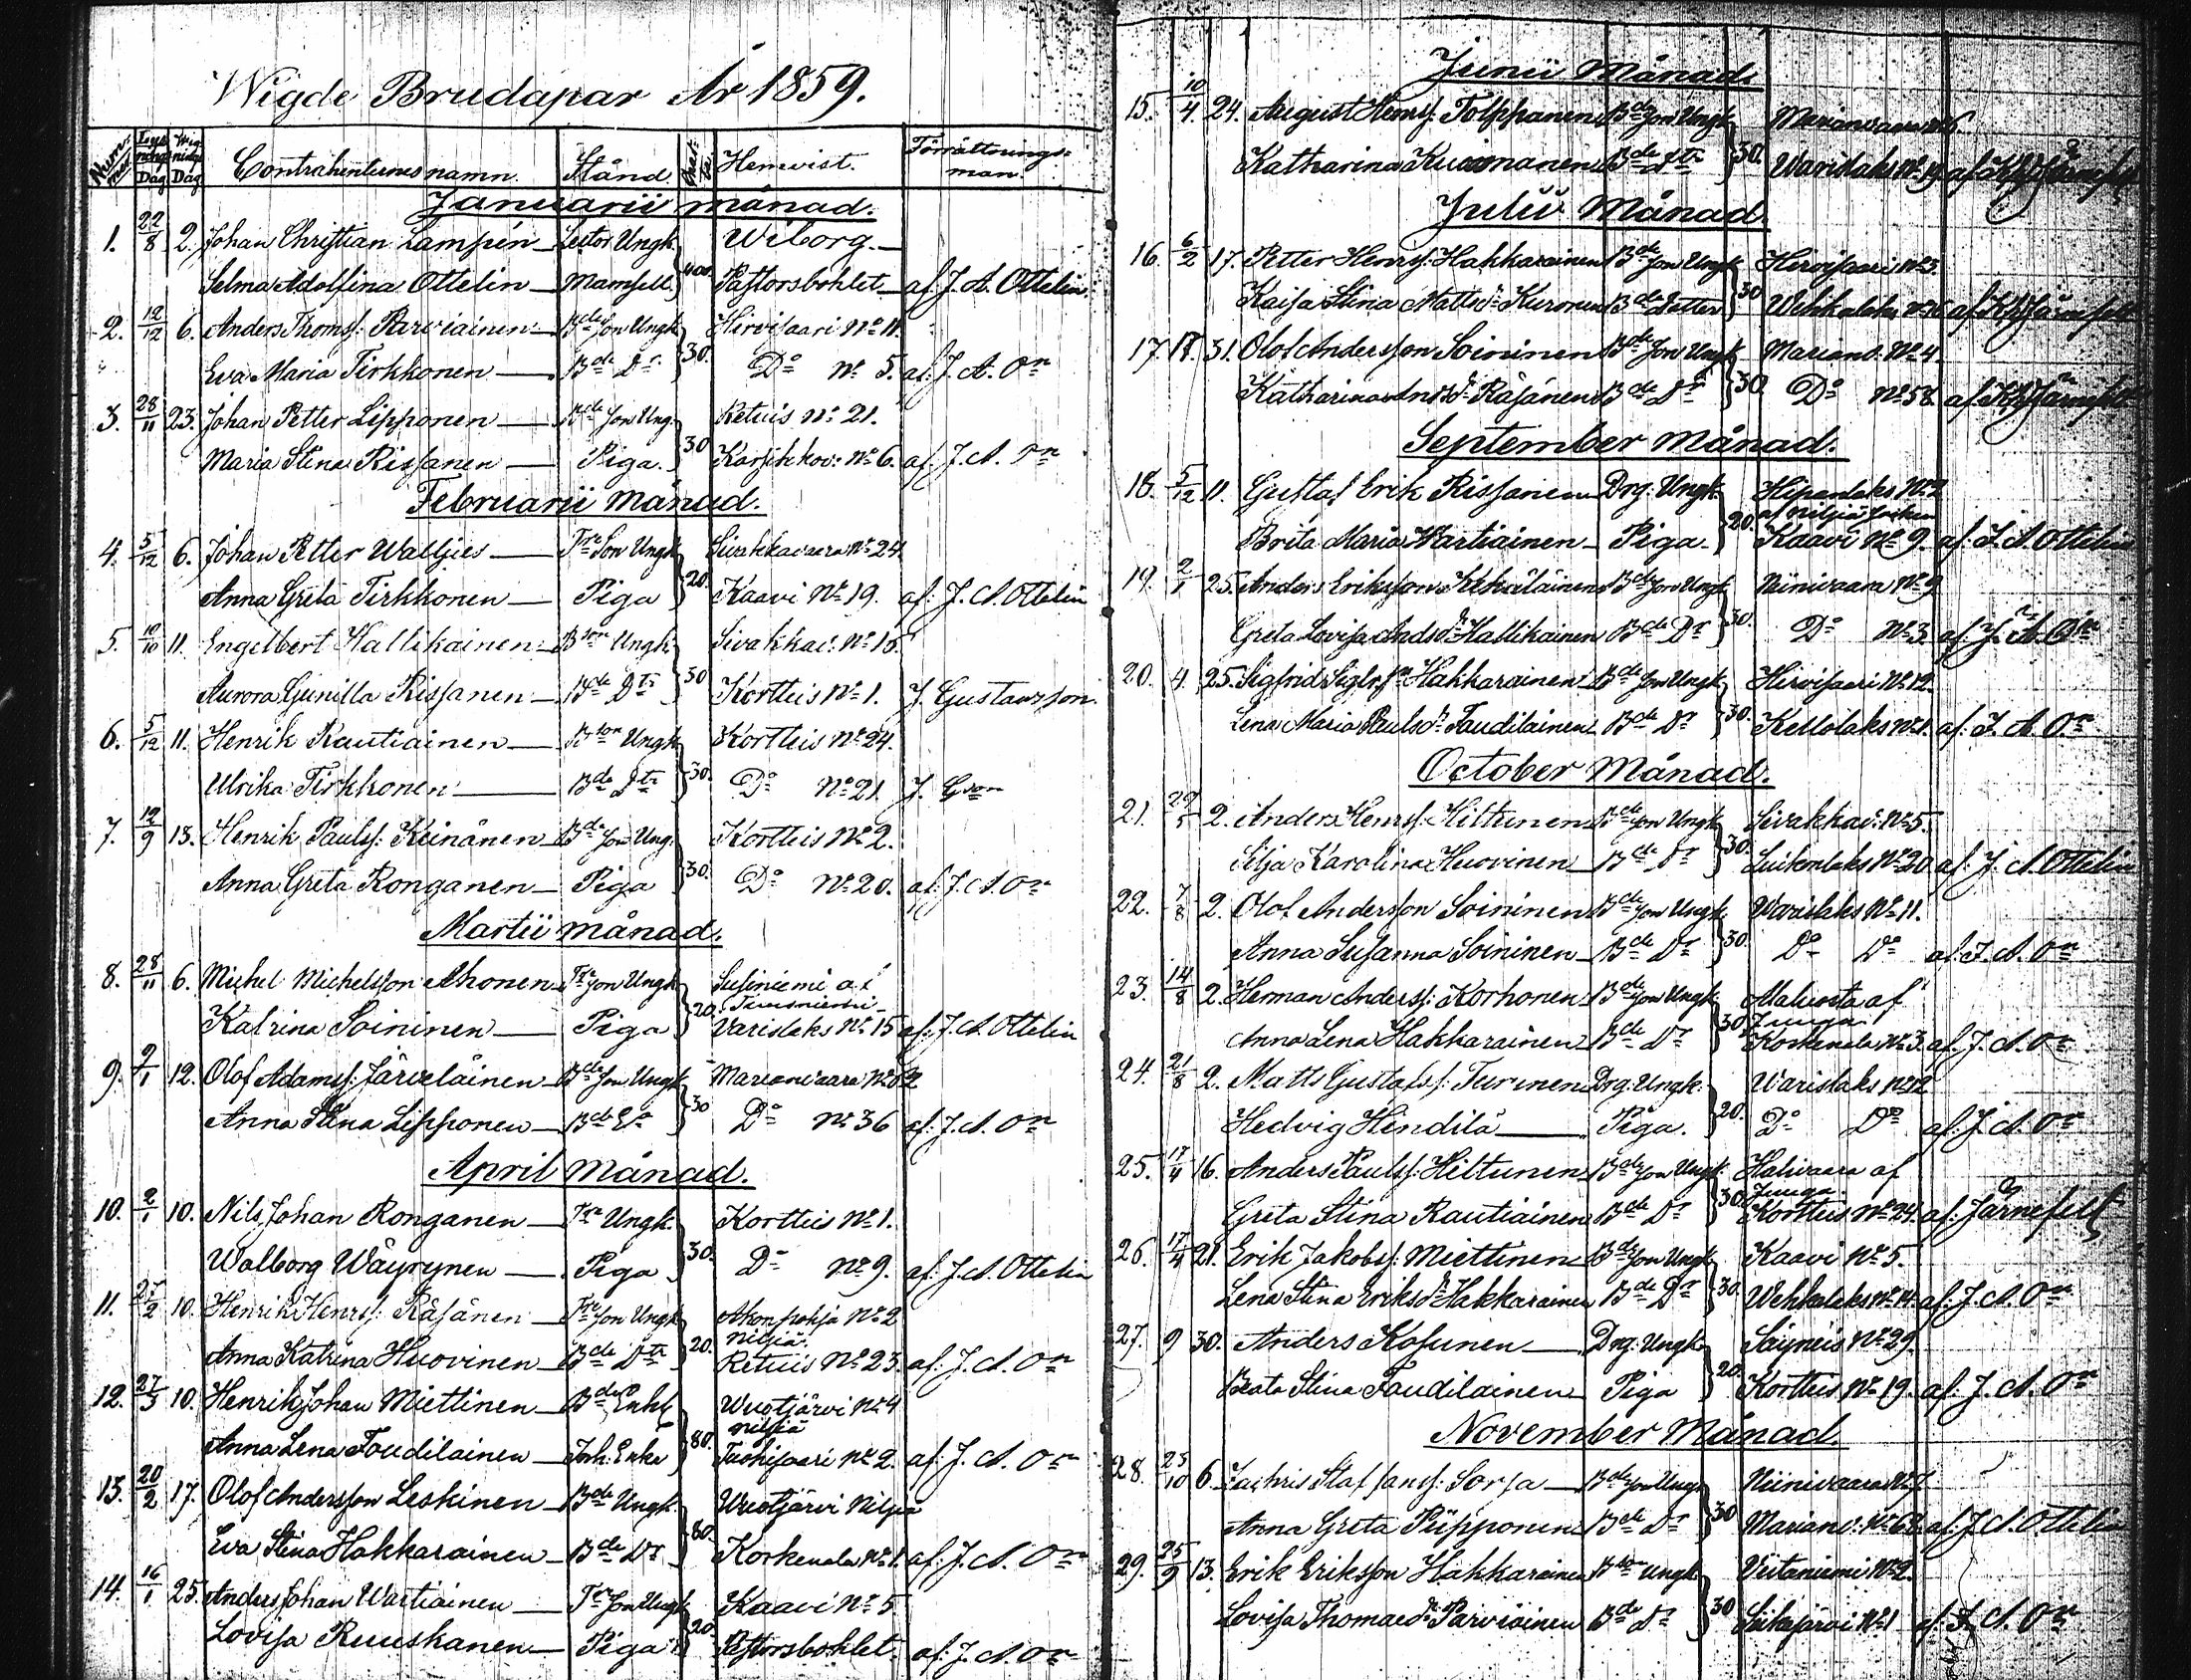 Wigde Brudapar År 1859.
Num mer Lys nings Dag Wig nings Dag Contrahenternes namn. Stånd. Hemvist. Förrättnings-man.
Januarii månad.
1. 22/8 2. Johan Christian Lampén Lector Ungk. Wiborg.
Selma Adolfina Ottelin Mamsell 400. Pastorsbohlet af J. A. Ottelin.
2. 12/12 6. Anders Thomss: Parviainen Bde Son Ungk. Hirvisaari No 11.
Eva Maria Tirkkonen Bde Dr 30. Do No 5. af J. A. On
3. 28/11 23. Johan Petter Lipponen Bde Son Ung. Retuis No 21.
Maria Stina Rissanen Piga. 30 Karsikkov: No 6. af: J. A. On
Februarii månad.
4. 5/12 6. Johan Petter Walljus Tre Son Ungk. Sivakkavaara No 24.
Anna Greta Tirkkonen Piga 20. Kaavi No 19. af: J. A. Ottelin
5. 10/10 11. Engelbert Hallikainen Bson Ungk. Sivakkav: No 15.
Aurora Gunilla Rissanen Bde Dtr 30 Kortteis No 1. J. Gustavsson.
6. 5/12 11. Henrik Rautiainen Bson Ungk. Kortteis No 24.
Ulrika Tirkkonen Bde Dtr 30. Do No 21. J. Gson
7. 12/9 13. Henrik Paulss: Keinänen Bde Son Ung. Kortteis No 2.
Anna Greta Ronganen Piga 30. Do No 20. af: J. A. On
Martii månad.
8. 28/11 6. Michel Michelsson Ahonen Tre Son Ungk. Susiniemi af
Katrina Soininen Piga 20. Varislaks No 15 af: J. A. Ottelin
9. 9/1 12. Olof Adamss: Järveläinen Bde Son Ungk. Marianvaara No
Anna Stina Lipponen Bde 30 Do No 36 af: J. A. On
April månad.
10. 2/1 10. Nils Johan Ronganen Tre Ungk. Kortteis No 1.
Walborg Wäyrynen Piga 30. Do No 9. af: J. A. Ottelin
11. 27/2 10. Henrik Henrss: Räsänen Tre Son Ungk. Akonpohja No 2
nilsiä.
Anna Katrina Huovinen Bde Dtr 20. Retuis No 23. af: J. A. On
12. 27/3 10. Henrik Johan Miettinen Bde Enkl. Wuotjärvi No 4
nilsiä
Anna Lena Toudilainen Inh. Enka 80. Tuohisaari No 2. af J. A. On
13. 20/2 17. Olof Andersson Leskinen Bde Ungk. Wuotjärvi Nilsiä
Eva Stina Hakkarainen Bde Dr 80. Korkenala No 1. af: J. A. On
14. 16/1 25. Anders Johan Wartiainen Tre Son Ungk. Kaavi No 5
Lovisa Ruuskanen Piga 20. Pastorsbohlet. af: J. A. On
Junii Månad.
15. 10/4 24. August Henrss: Tolppanen Bde Son Ungk. Marianvaara No 6.
Katharina Kuosmanen Bde Dtr 30. Warislaks No 19 af Järnefelt
Julii Månad.
16. 6/2 17. Petter Henrss: Hakkarainen Bde Son Ungk. Hirvisaari No 3.
Kaisa Stina Mattsdr Kuronen Bde Dotter 30 Wehkalaks No 16 af Järnefelt
17. 31. Olof Andersson Soininen Bde Son Ungk. Marianv. No 4.
Katharina Andsdr Räsänen Bde Dr 30. Do No 58. af Järnefelt
September månad.
18. 5/12 11. Gustaf Erik Rissanen Drg: Ungk. No 2
af nilsiä Socken
Brita Maria Wartiainen Piga. 20. Kaavi No 9. af. J. A. Ottelin
19. 2/1 25. Anders Eriksson Kekäläinen Bde Son Ungk. Niinivaara No 9
Greta Lovisa Andsdr Hallikainen Bde Dr 30. Do No 3. af J. A. On
20. 4. 25. Sigfrid Sigfrss Hakkarainen Bde Son Ungk. Hirvisaari No 12.
Lena Maria Paulsdr Taudilainen Bde Dr 30. Kellolaks No 1. af: J. A. On
October Månad.
21. 2. Anders Henrss: Hiltunen Bde Son Ungk. Sivakkav: No 5.
Silja Karolina Huovinen Bde Dr 30. Luikonlaks No 20 af: J. A. Ottelin
22. 7/8 2. Olof Andersson Soininen Bde Son Ungk. Warislaks No 11.
Anna Susanna Soininen Bde Dr 30. Do Do af. J. A. On
23. 14/8 2. Herman Anderss: Korhonen Bde Son Ungk. af
Juuga
Anna Lena Hakkarainen Bde Dr 30 Korkenala No 3. af: J. A. On
24. 21/8 2. Matts Gustafss: Turunen Drg: Ungk. Warislaks No 12
Hedvig Hindilä Piga. 20. Do Do af: J. A. On
25. 17/4 16. Anders Paulss: Hiltunen Bde Son Ungk. Halivaara af
Juuga
Greta Stina Rautiainen Bde Dr 30. Kortteis No 24. af: Järnefelt
26. 17/4 21. Erik Jakobss: Miettinen Bde Son Ungk. Kaavi No 5.
Lena Stina Eriksdr Hakkarainen Bde Dr 30. Wehkalaks No 14. af: J. A. On
27. 9 30. Anders Kosunen Drg: Ungk. Säyneis No 29.
Beata Stina Taudilainen Piga 20. Kortteis No 19. af: J. A. On
November Månad.
28. 23/10 6. Zachris Staffanss: Sorsa Bde Son Ungk. Niinivaara No
Anna Greta Piipponen Bde Dr 30 Marianv: No 63. af: J. A. Ottelin
29. 25/9 13. Erik Eriksson Hakkarainen Bson Ungk. Vitaniemi No 2.
Lovisa Thomaedr Parviainen Bde Dr 30 Siikajärvi No 1 af: J. A. On